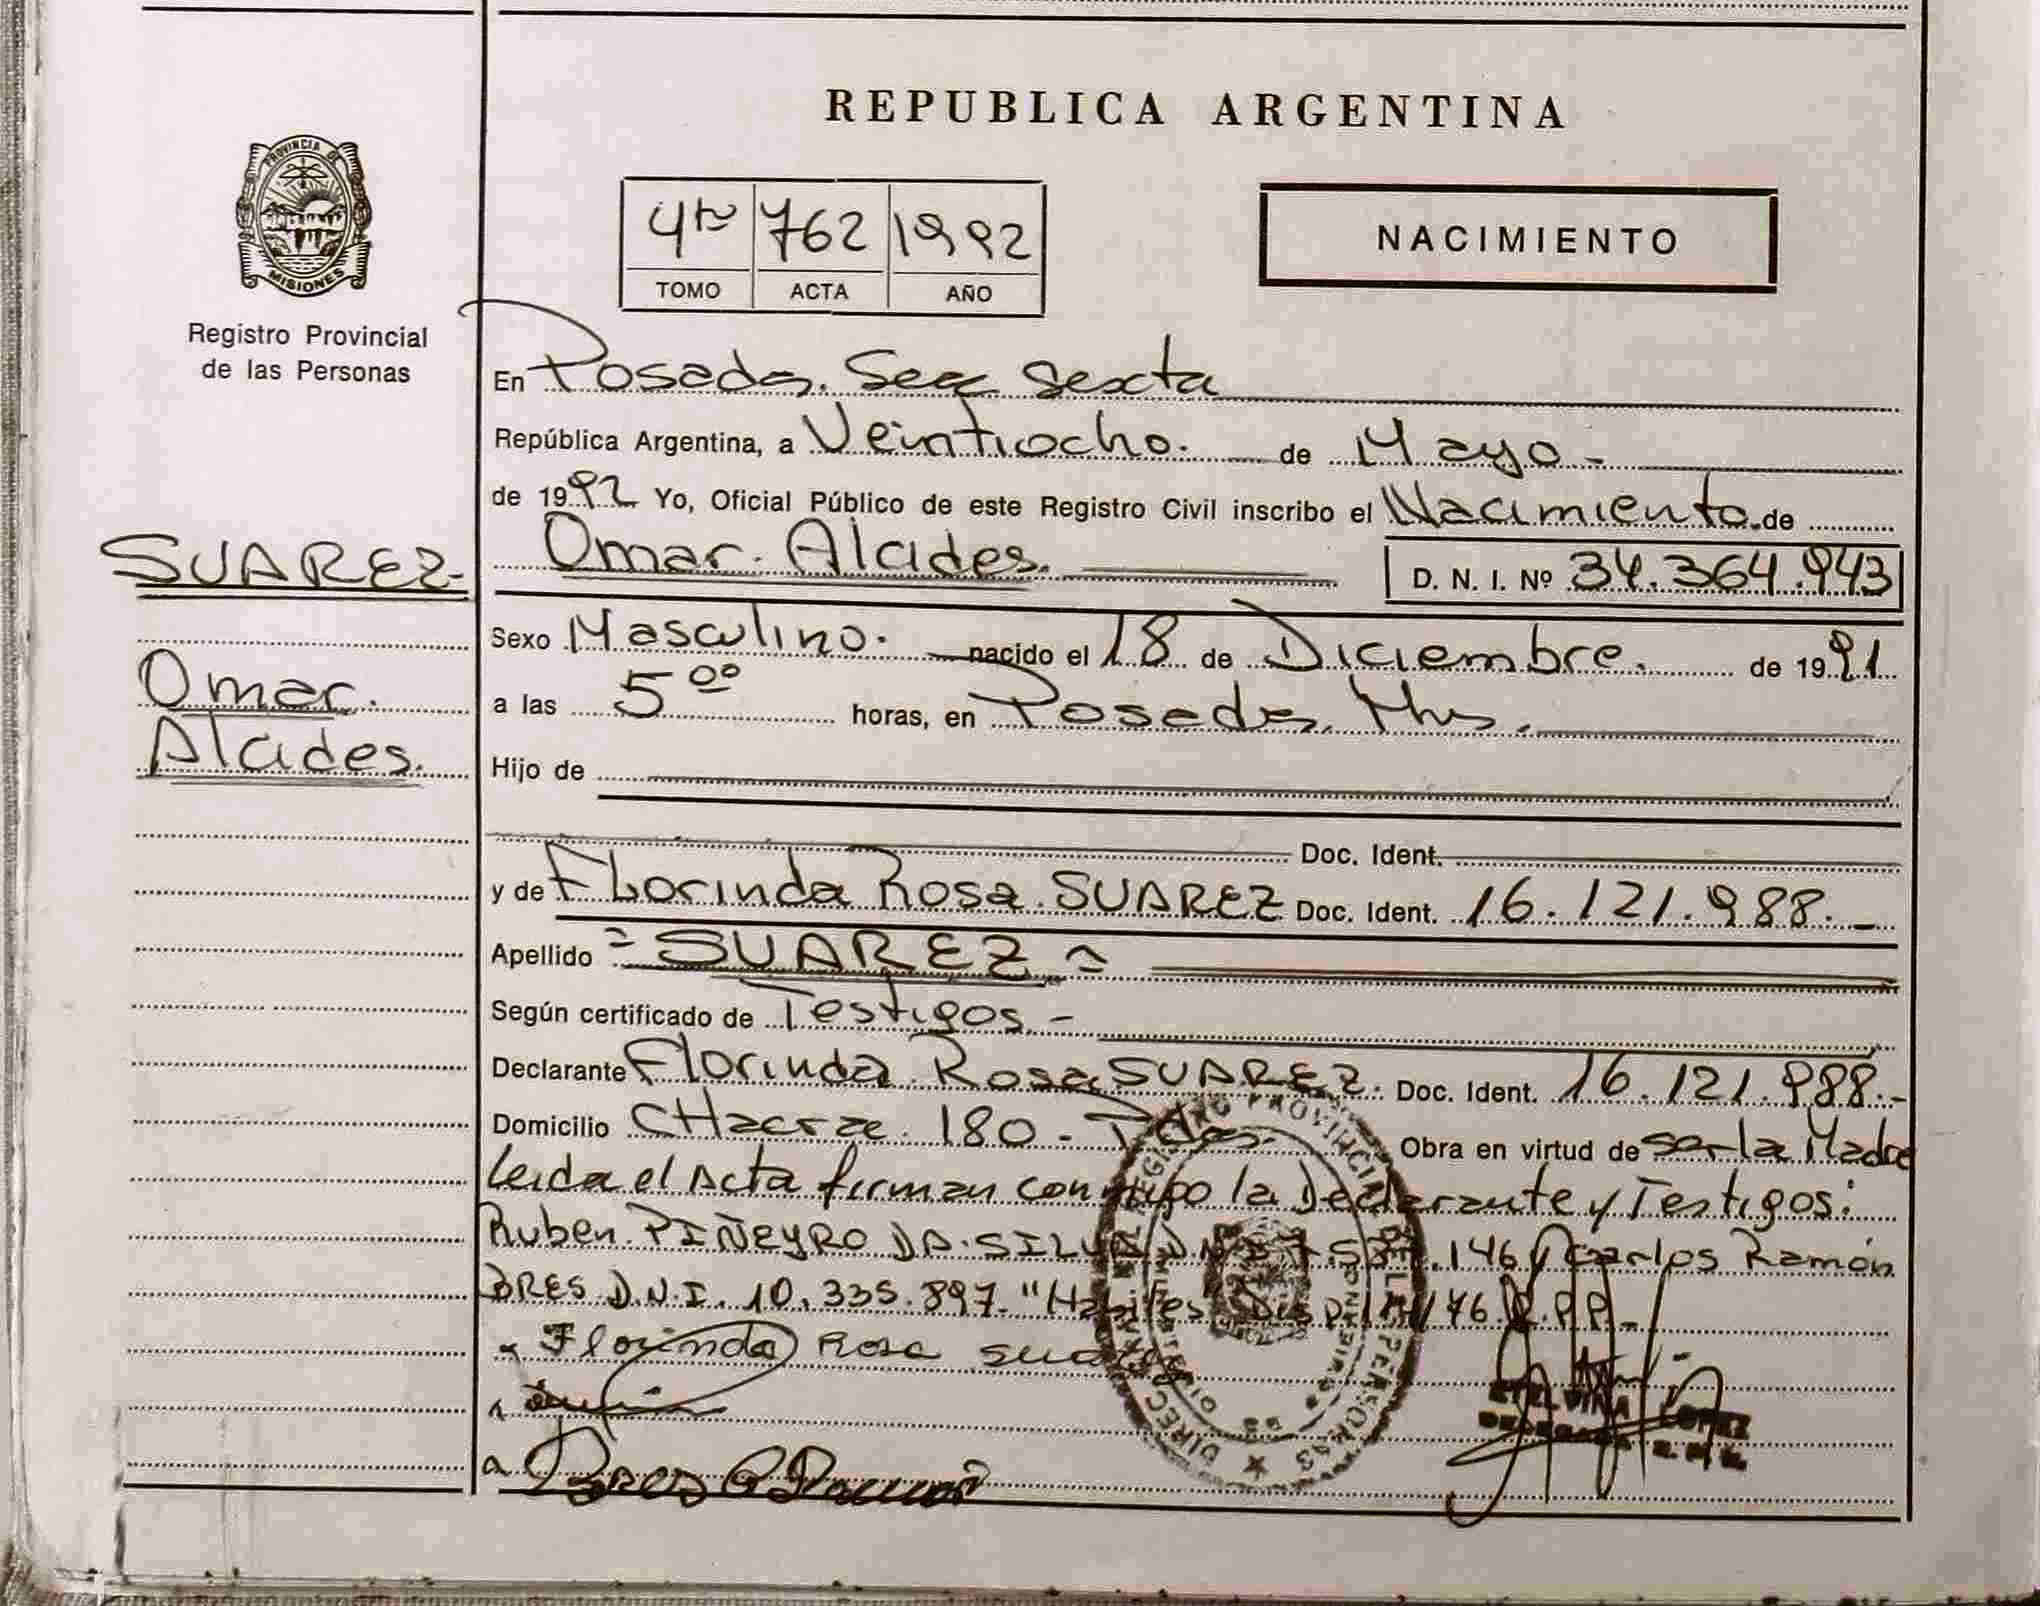 REPUBLICA ARGENTINA
PROVINCIA DE
MISIONES
Registro Provincial
de las Personas
4to 762 1992
TOMO ACTA AÑO
NACIMIENTO
En Posadas. Secc Sexta
República Argentina, a Veintiocho. de Mayo -
de 1992 Yo, Oficial Público de este Registro Civil inscribo el Nacimiento. de
SUAREZ-
Omar. Alcides.
D. N. I. Nº 34.364.943
Sexo Masculino. nacido el 18 de Diciembre. de 1991
Omar.
Alcides.
a las 5 00 horas, en Posadas. Mnes.
Hijo de
Doc. Ident.
y de FLorinda Rosa. SUAREZ Doc. Ident. 16.121.988. -
Apellido = SUAREZ =
Según certificado de Testigos. -
Declarante Florinda. Rosa SUAREZ. Doc. Ident. 16.121.988.-
Domicilio CHacra. 180 - Pdas. Obra en virtud de ser la Madre
leida el Acta firman conmigo la Declarante y Testigos:
Ruben. PIÑEYRO DA. SILVA D.N.I 146 y Carlos Ramón
BRES D.N.I. 10.335.897. "Habiles" Disp. R.P.P.
Florinda Rosa Suarez
Bres C Ramon
ETELVINA LOPEZ
DELEGADA